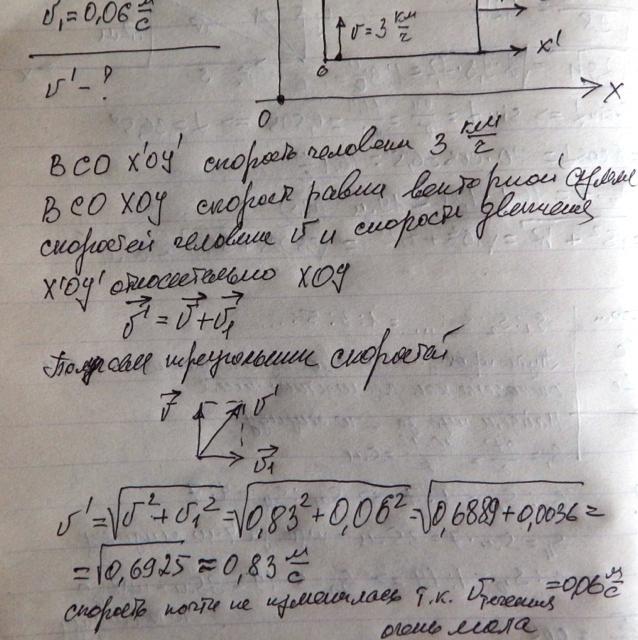 v₁ = 0,06 м/с
v = 3 км/ч
X'
0
v' - ?
X
0
В СО X'OY' скорость человека 3 км/ч
В СО XOY скорость равна векторной сумме
скоростей человека v и скорости движения
X'OY' относительно XOY
v⃗' = v⃗ + v⃗₁
треугольник скоростей
v⃗ v'
v⃗₁
v' = √(v² + v₁²) = √(0,83² + 0,06²) = √(0,6889 + 0,0036) =
= √0,6925 ≈ 0,83 м/с
скорость почти не изменилась т.к. v течения = 0,06 м/с
очень мала